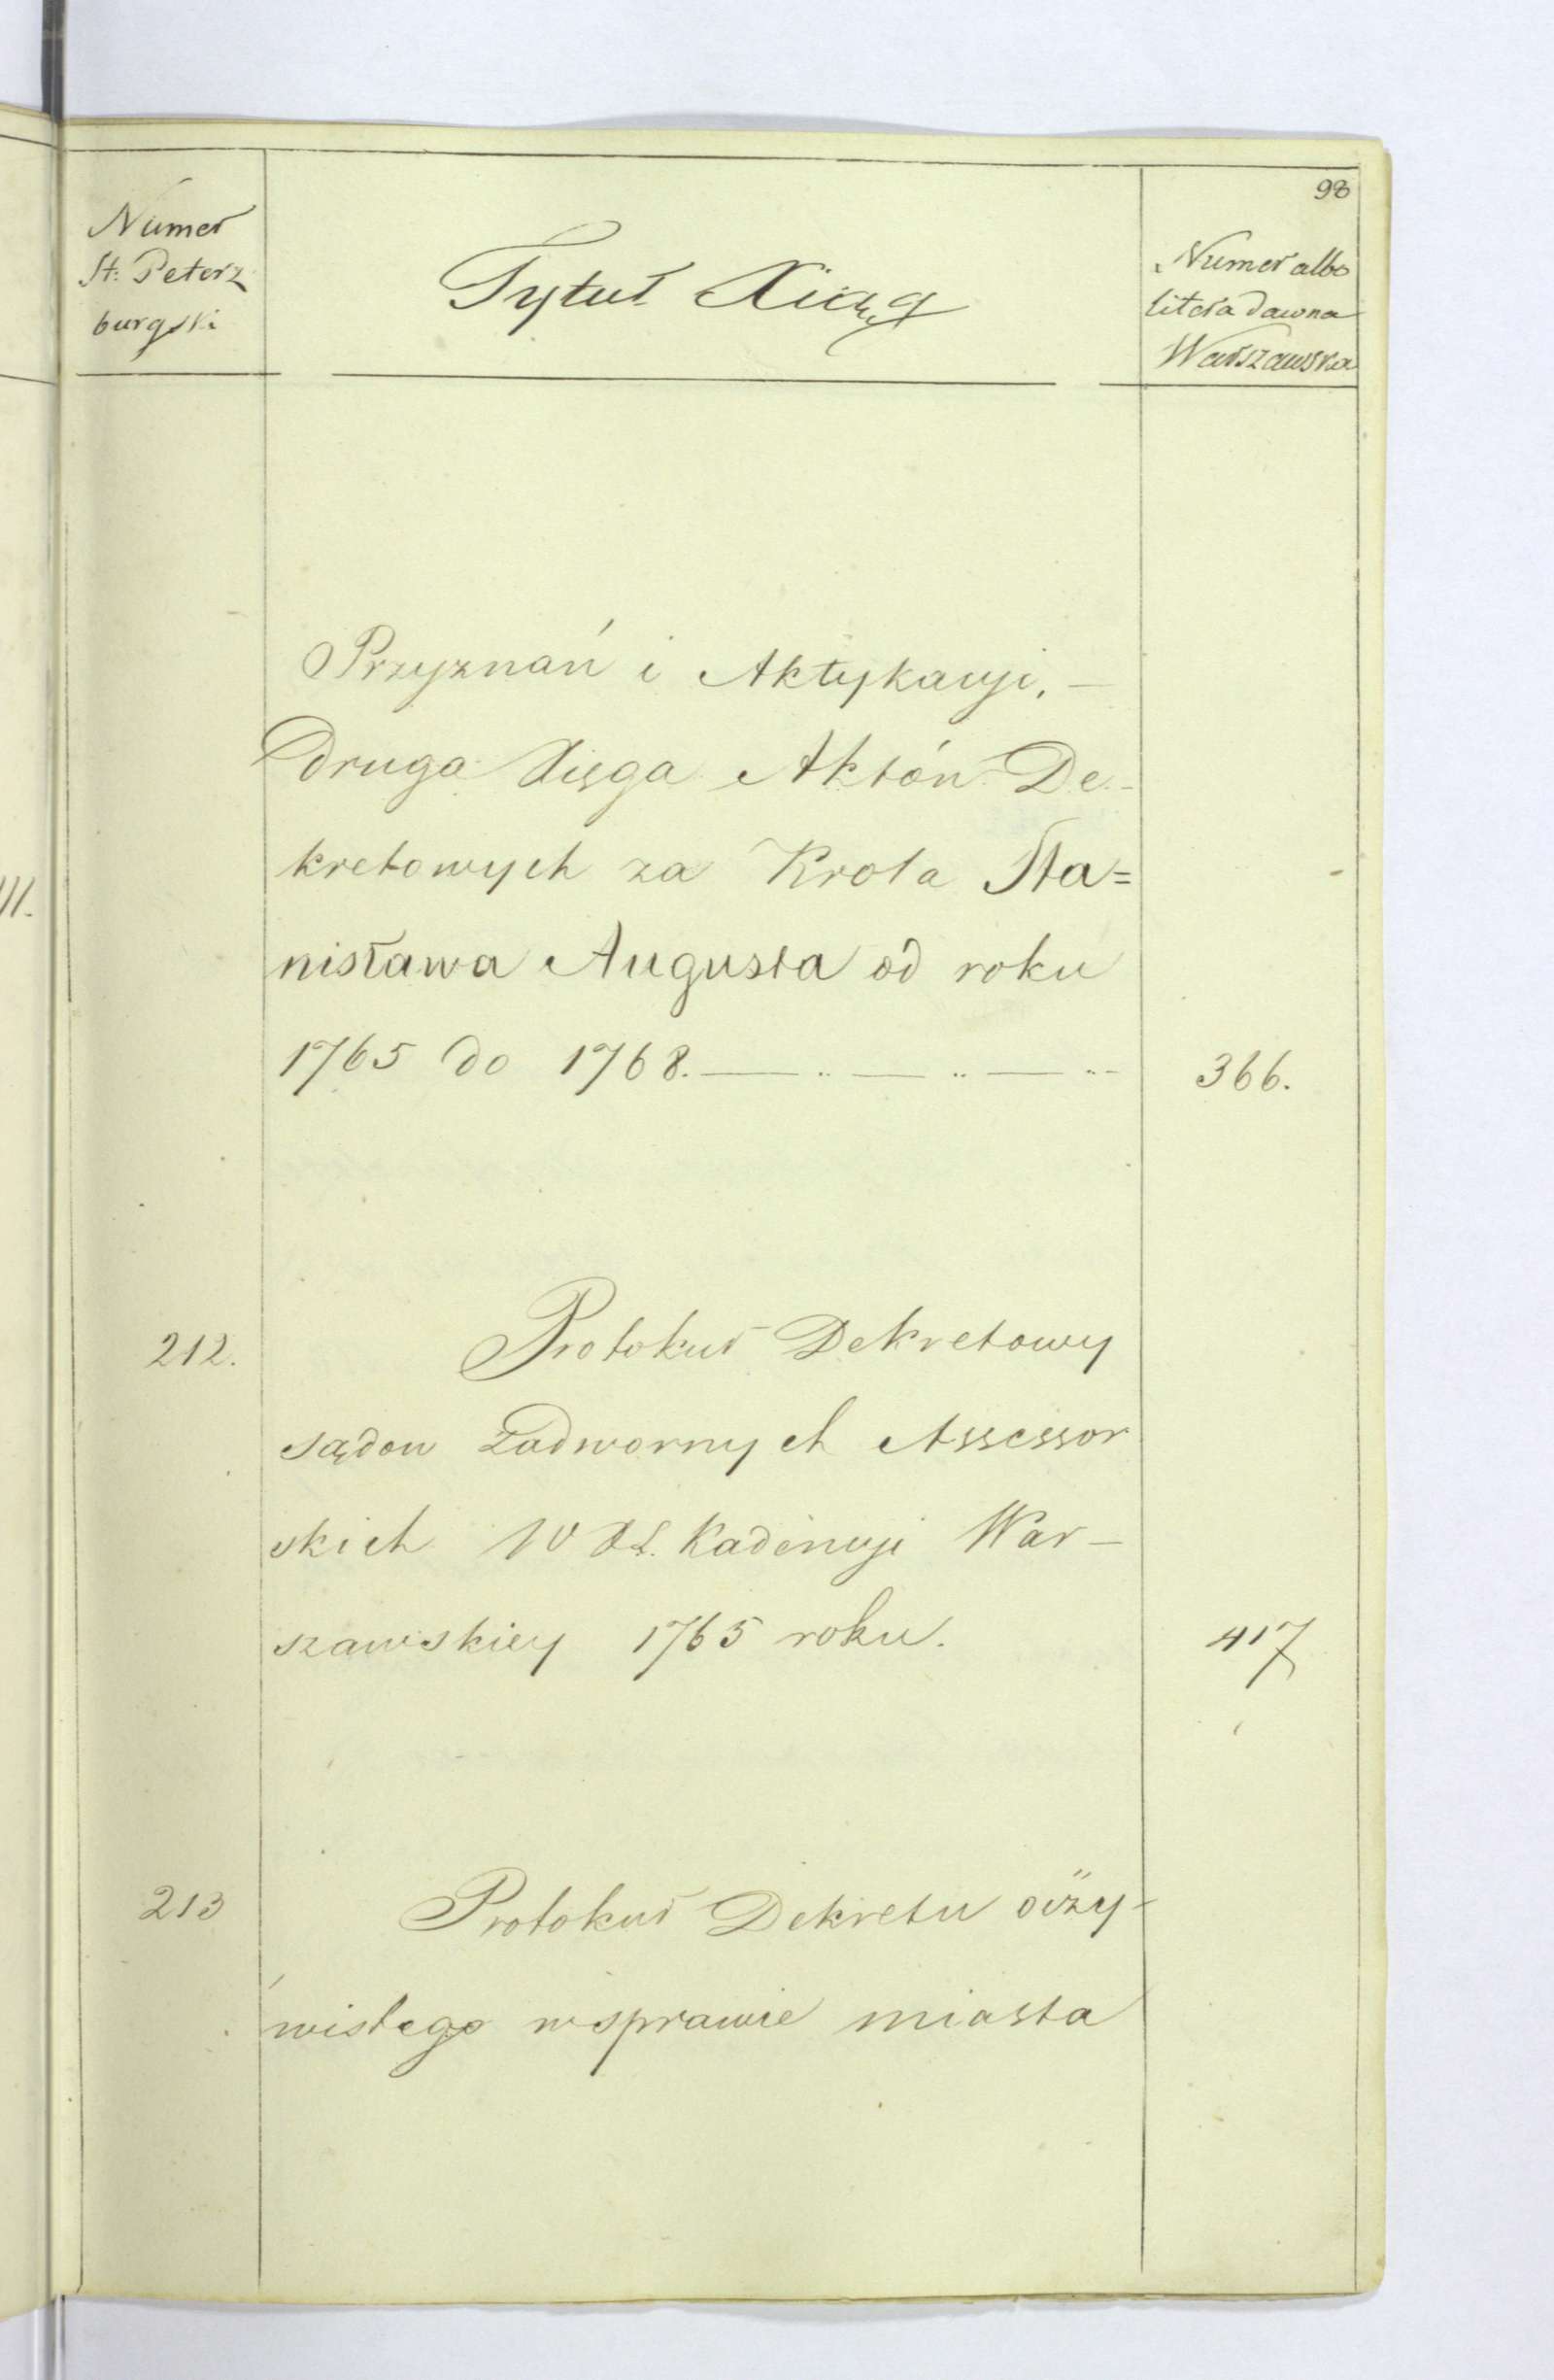 98
Numer
St: Peterz
burgski
Tytuł Xiąg
Numer albo
litera dawna
Warszawska
Przyznań i Aktykacyi, —
Druga Xięga Aktów De-
kretowych za Krola Sta=
nisława Augusta od roku
1765 do 1768. — .. — .. — ..
366.
212.
Protokuł Dekretowy
sądow Zadwornych Assessor
skich W. X. L. Kadencyi War-
szawskiey 1765 roku.
417
213
Protokuł Dekretu oczy-
wistego w sprawie miasta